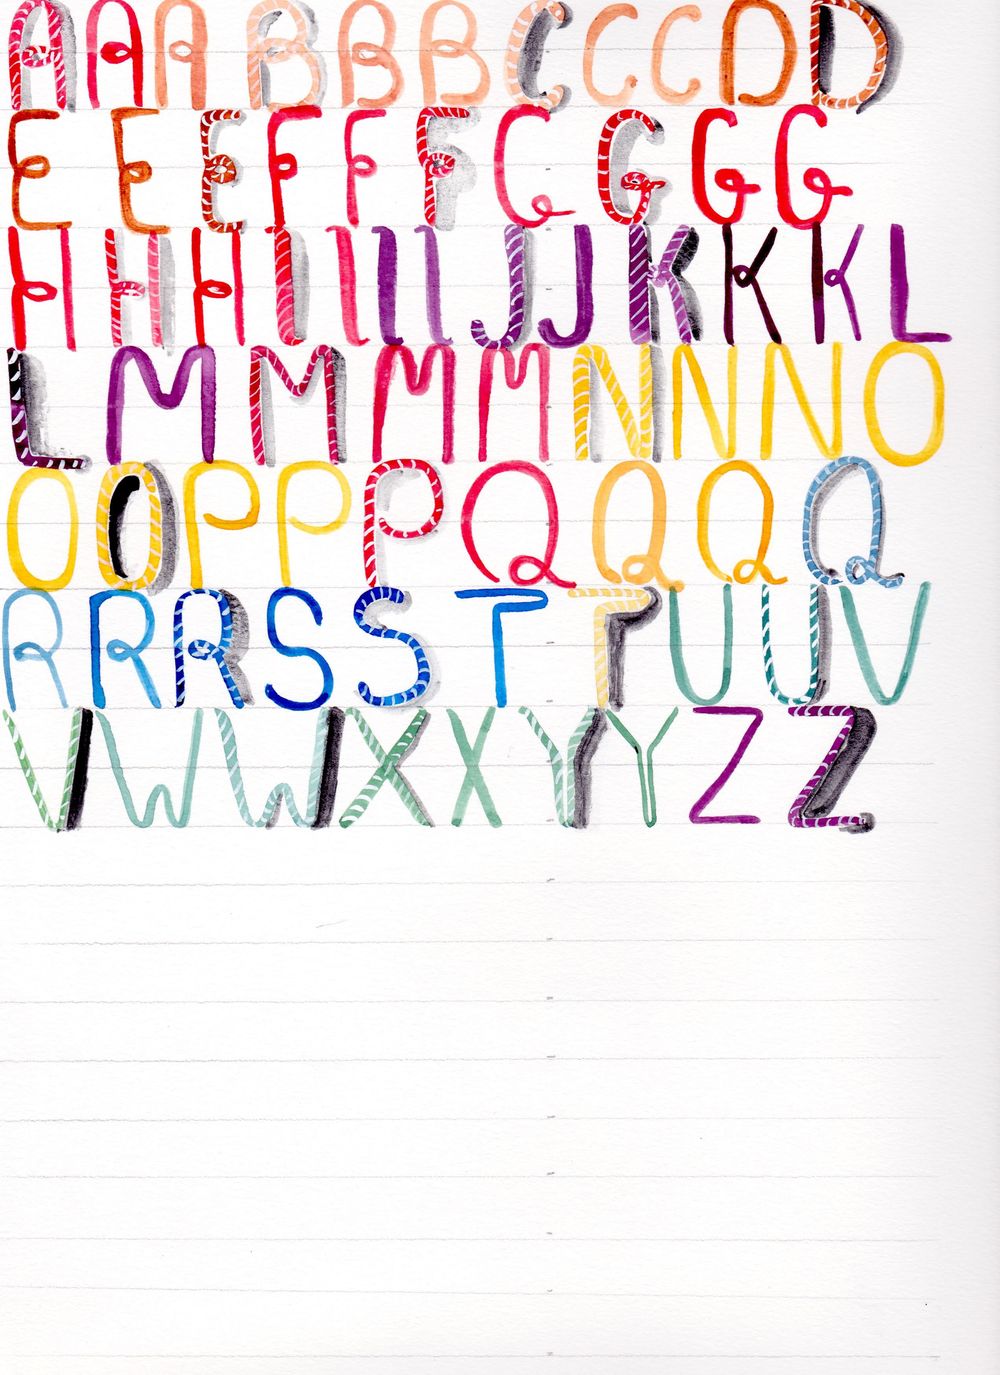 AAABBBCCCCDD
EEEFFFGGGG
HHHIIIIJJKKKL
LMMMMNNNO
OOPPPQQQQ
RRRSSTTUUV
VWWXXYYZZ